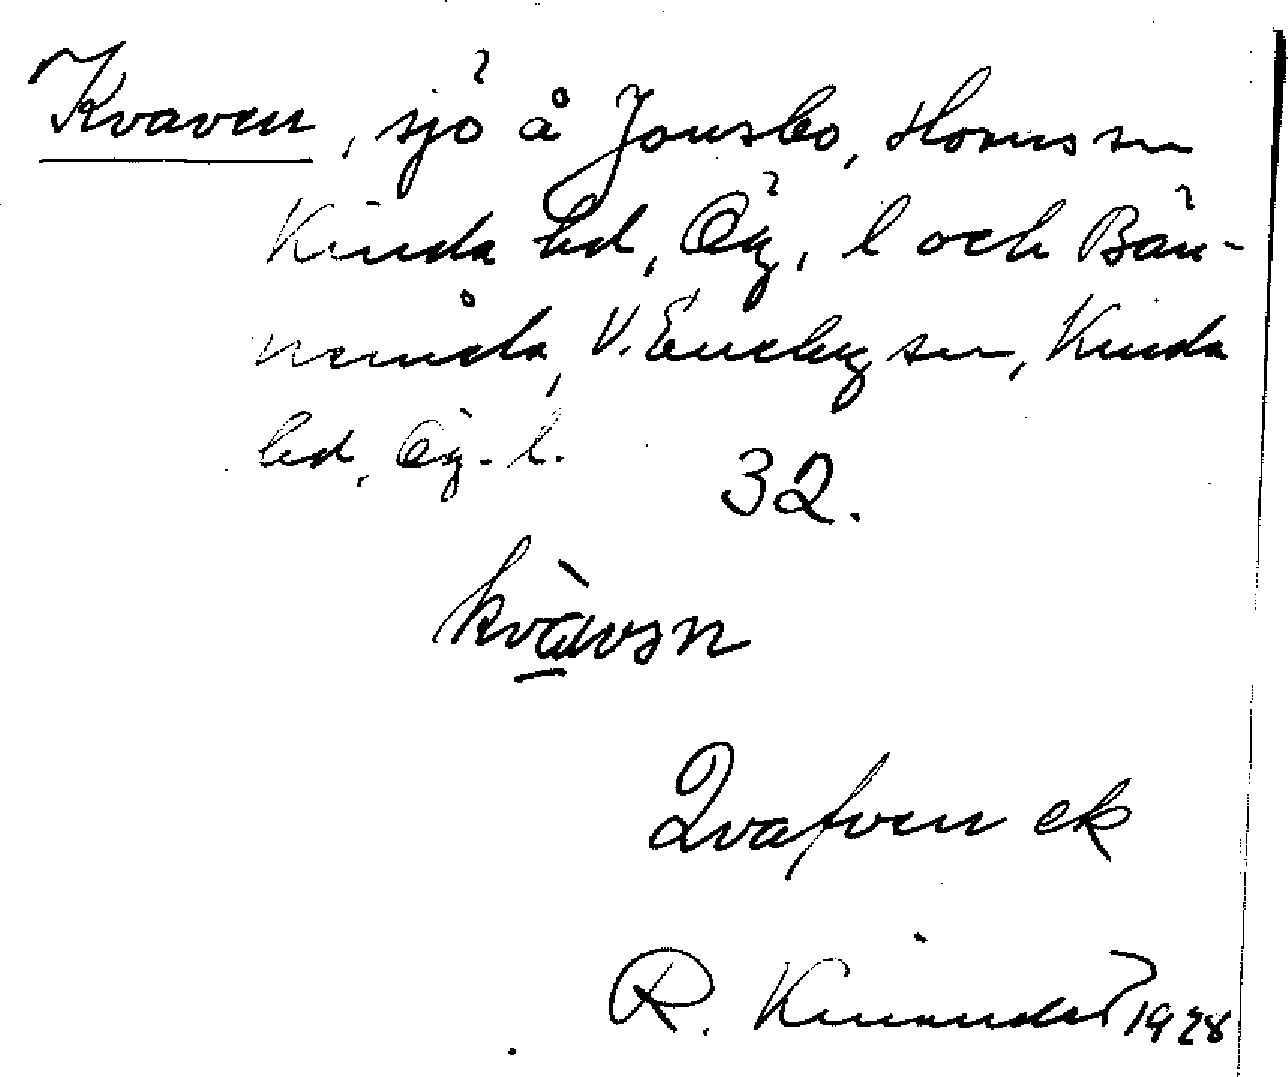 Kvaven, sjö å Jonsbo, Horns sn
Kinda hd, Ög. l och Bän-
V. Eneby sn, Kinda
hd, Ög. l.
32.
kvàvən
Qvafven ek
R. Kinander 1928